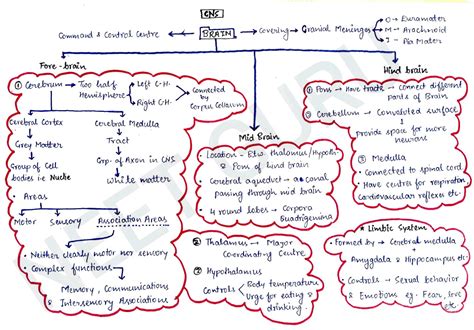 CNS
Command & Control Centre ← BRAIN → Covering → Cranial Meninges
O → Duramater
M → Arachnoid
I → Pia Mater
Fore-brain
① Cerebrum → Two half Hemisphere
Left C.H.
Right C.H.
Connected by Corpus Callosum
Cerebral Cortex
Grey Matter
Group of Cell
bodies i.e Nuclie
• Areas
Motor Sensory Association Areas
Cerebral Medulla
Tract
Grp. of Axon in CNS
White matter
• Neither clearly motor nor sensory
• Complex functions
Memory, Communications
& Intersensory Associations
Mid Brain
• Location - Btw. thalamus/Hypoth.
& Pons of hind brain
• Cerebral aqueduct → a canal
passing through mid brain
• 4 round lobes → Corpora
Quadrigemina
② Thalamus → Major
Coordinating Centre
③ Hypothalamus
Controls
Body temperature
Urge for eating &
drinking.
Hind brain
① Pons → Have tracts → Connect different
parts of Brain
② Cerebellum → Convoluted surface
Provide space for more
neurons
③ Medulla
• Connected to spinal cord
• Have centres for respiration,
Cardiovascular reflexes etc.
* Limbic System
• Formed by → Cerebral medulla
Amygdala & Hippocampus etc
• Controls → Sexual behavior
& Emotions eg. Fear, love
etc